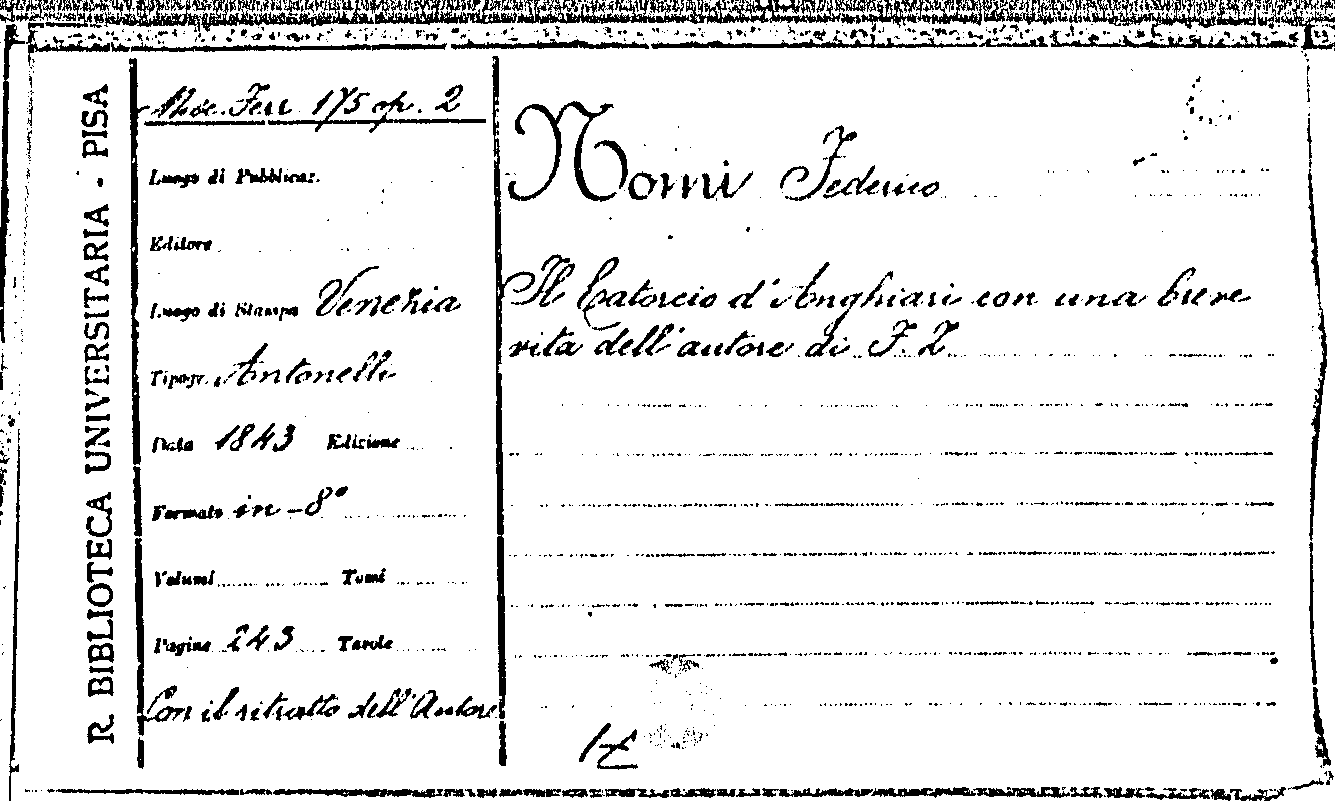 R. BIBLIOTECA UNIVERSITARIA - PISA
Misc. Ferr 175 op. 2
Luogo di Pubblicaz.
Editore
Luogo di Stampa Venezia
Tipogr. Antonelli
Data 1843 Edizione
Formato in-8°
Volumi Tomi
Pagine 243 Tavole
Con il ritratto dell'Autore
Nomi Federico
Il Catorcio d'Anghiari con una breve
vita dell'autore di F. Z